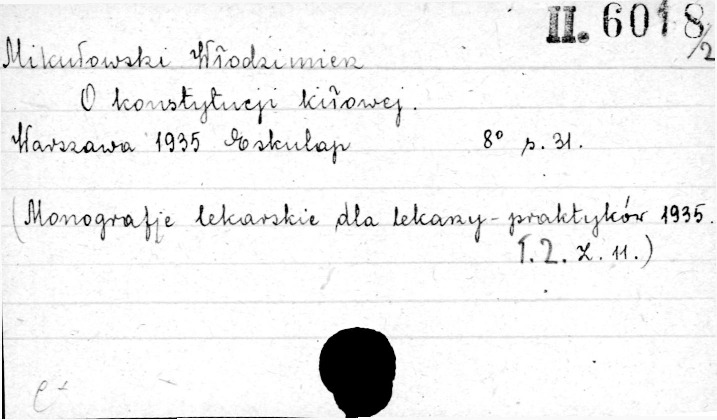 II. 6018/2
Mikułowski Włodzimierz
O konstytucji kiłowej.
Warszawa 1935 Eskulap 8° s. 31.
(Monografje lekarskie dla lekarzy-praktyków 1935.
T. 2. z. 11.)